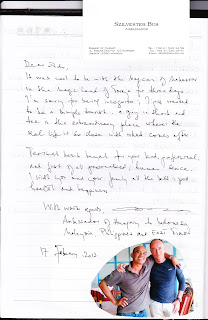 SZILVESZTER BUS
AMBASSADOR
EMBASSY OF HUNGARY
Dear Ede,
It was nice to be with the
in the magic land of Toraja for three days.
I'm sorry for being incognito, I just wanted
to be a simple tourist, a guy in shorts and
tee in this extraordinary place where the
real life is to do with what comes after
Terimah kasih banyak for your kind, professional,
and first of all personalized, human service.
I wish you and your family all the best, good
health and happiness
With warm regards,
Ambassador of Hungary to Indonesia
Malaysia Philippines and East Timor
17 February 2012